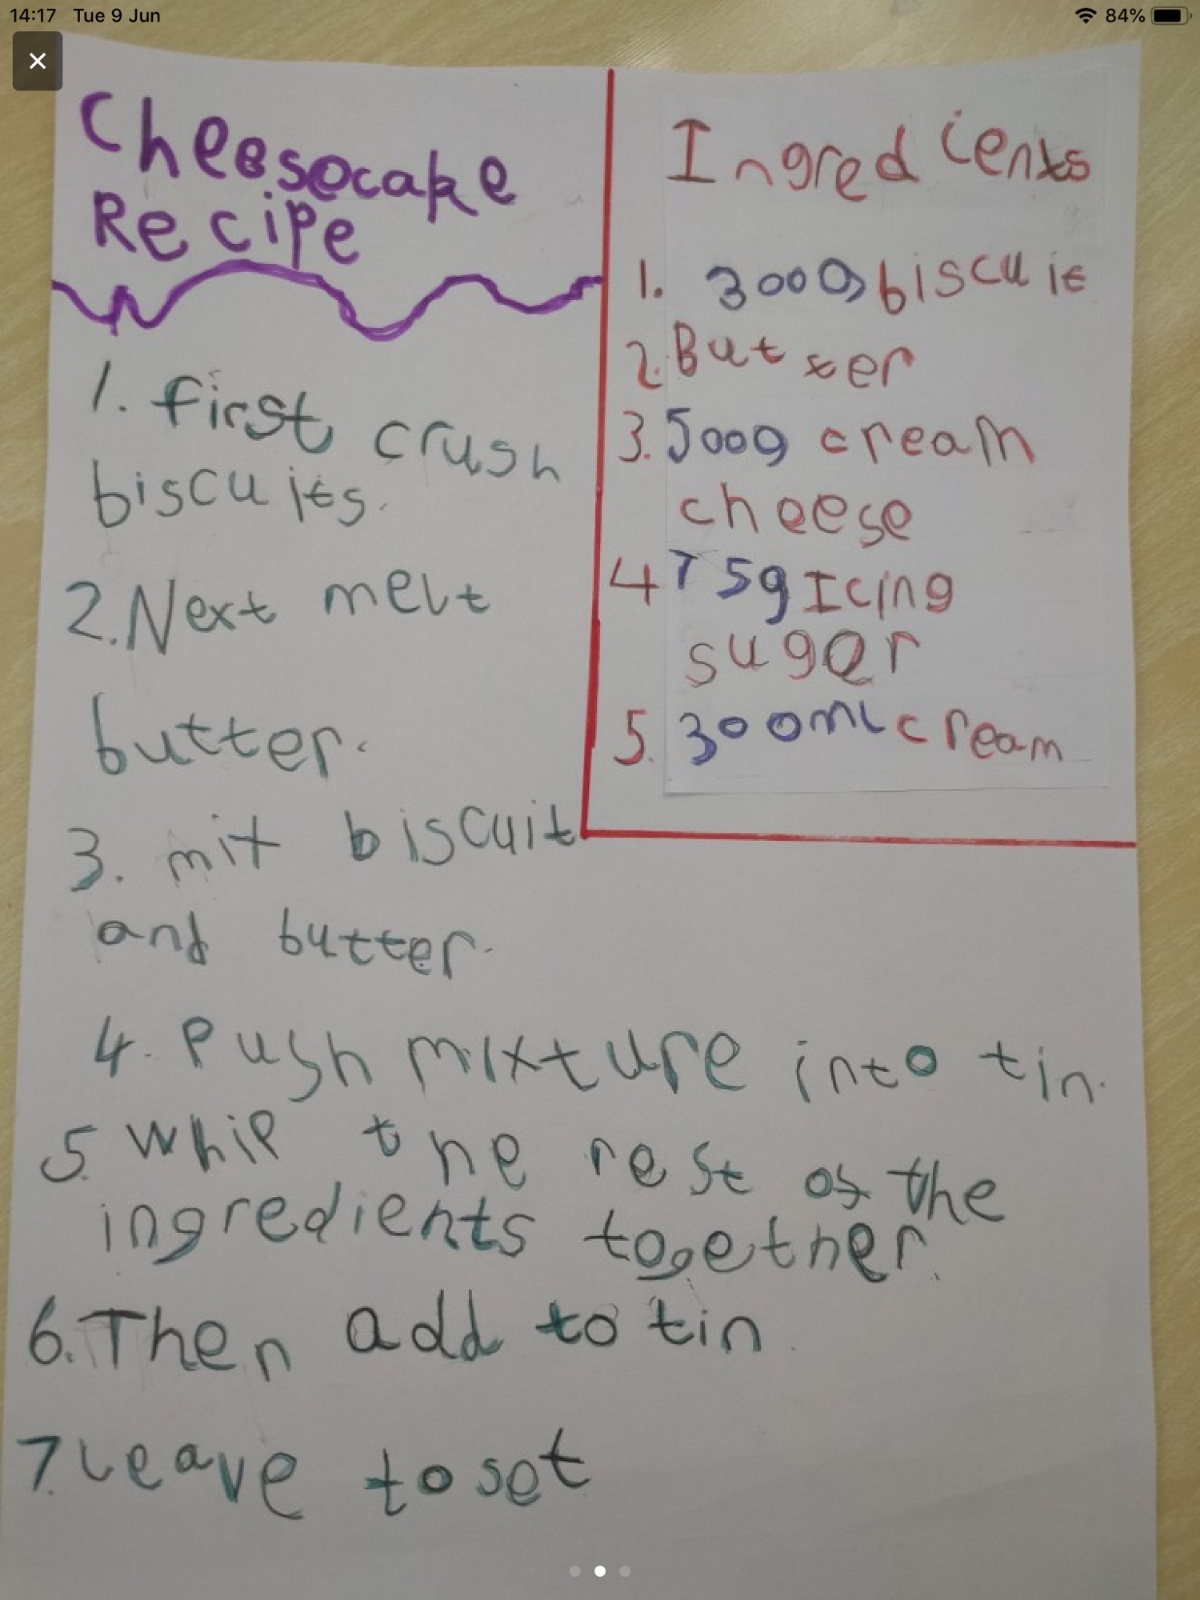 14:17 Tue 9 Jun
84%
Cheesecake
Recipe
1. first crush
biscuits.
2. Next melt
butter.
3. mix biscuit
and butter.
4. Push mixture into tin.
5. Whip the rest of the
ingredients together.
6. Then add to tin.
7. leave to set
Ingredients
1. 300g biscuit
2. Butter
3. 500g cream
cheese
4 75g Icing
suger
5. 300ml cream